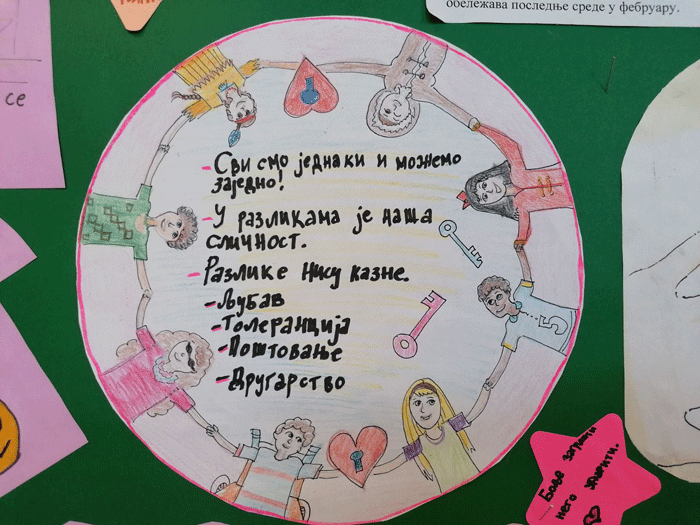 обележава последње среде у фебруару.
се
- Сви смо једнаки и можемо
заједно!
- У разликама је наша
сличност.
- Разлике нису казне.
- Љубав
- Толеранција
- Поштовање
- Другарство
5
Боље
него